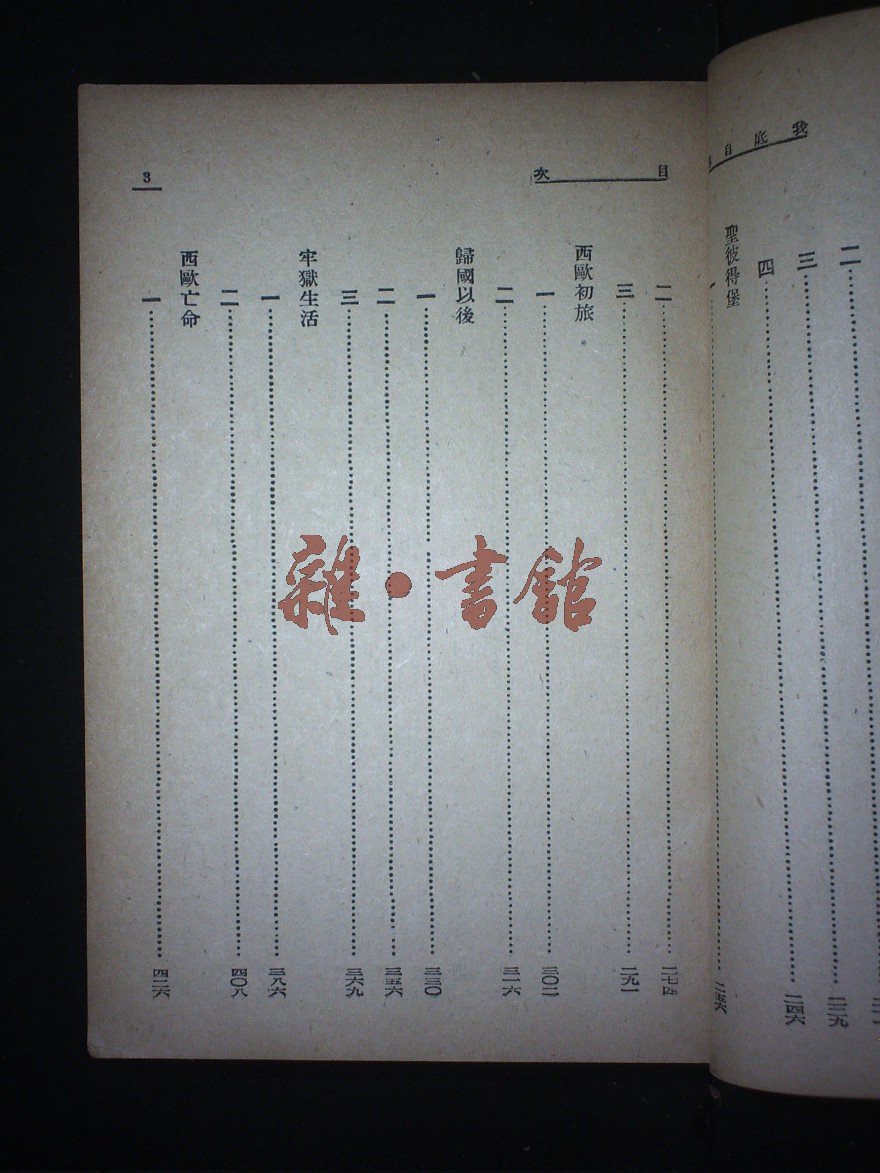 我底自
二
三⋯⋯二三九
四⋯⋯二四六
聖彼得堡
一⋯⋯二五六
目次
3
二⋯⋯二七四
三⋯⋯二九一
西歐初旅
一⋯⋯三〇二
二⋯⋯三一六
歸國以後
一⋯⋯三三〇
二⋯⋯三五六
三⋯⋯三六九
牢獄生活
一⋯⋯三八六
二⋯⋯四〇八
西歐亡命
一⋯⋯四二六
雜·書館